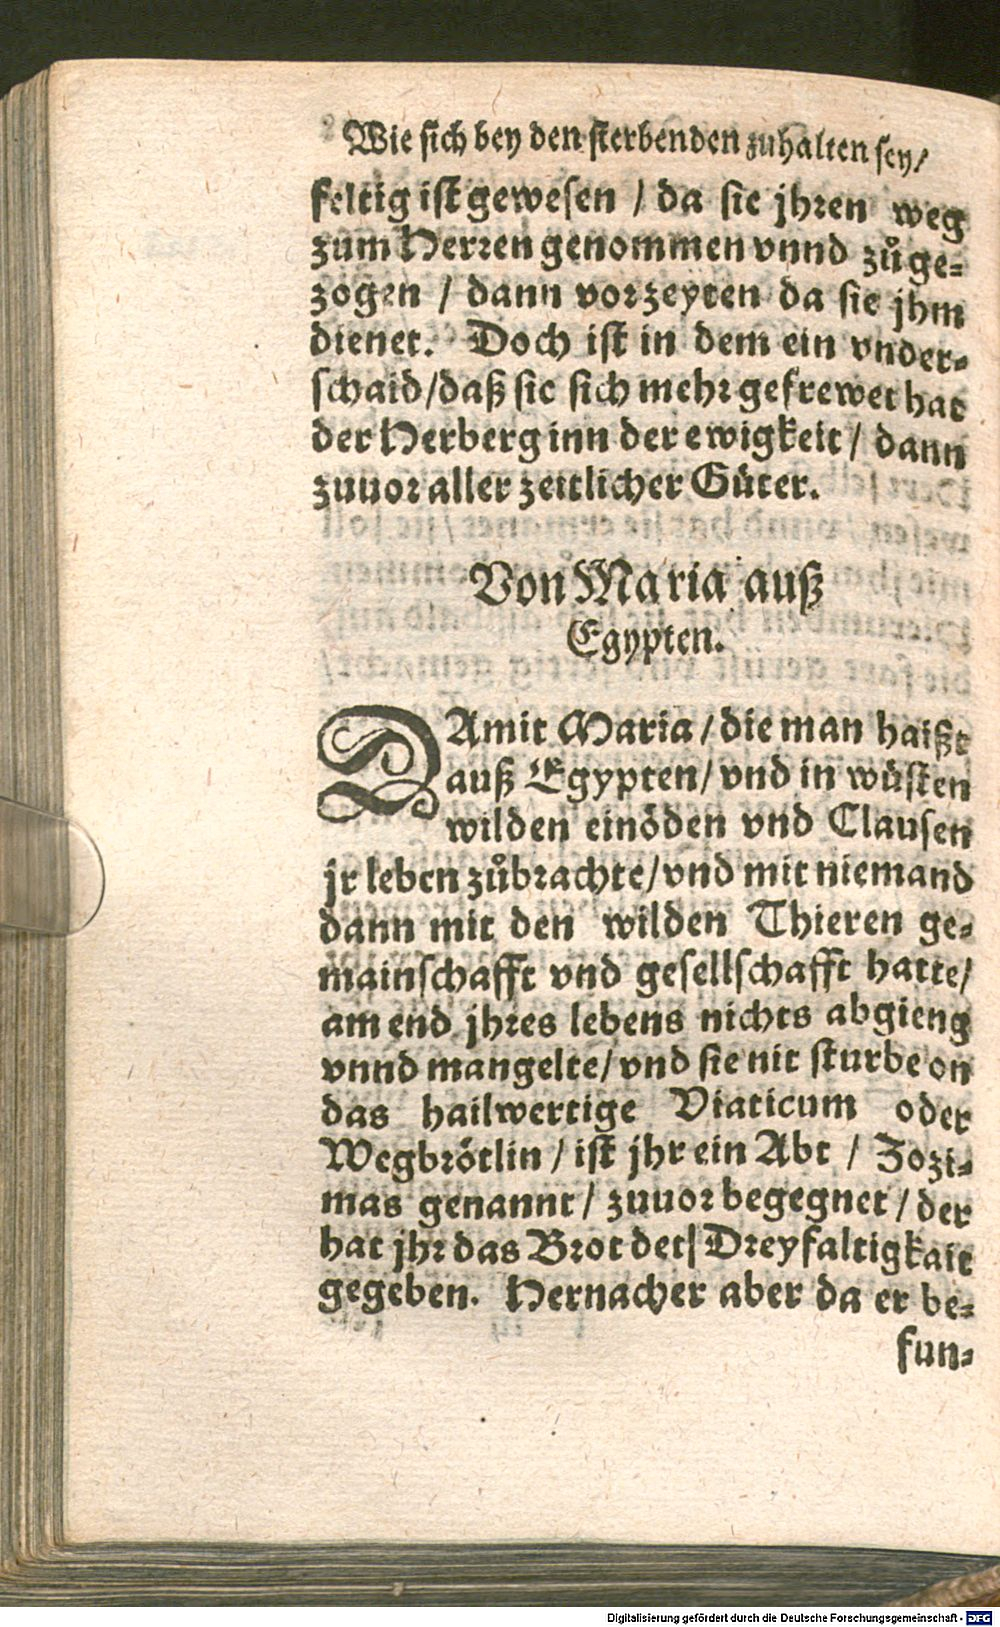 Wie sich bey den sterbenden zuhalten sey/
feltig ist gewesen / da sie jhren weg
zum Herren genommen vnnd zůge-
zogen / dann vorzeyten da sie jhm
dienet. Doch ist in dem ein vnder-
schaid/daß sie sich mehr gefrewet hat
der Herberg inn der ewigkeit / dann
zuuor aller zeitlicher Güter.
Von Maria auß
Egypten.
DAmit Maria / die man haißt
auß Egypten/ vnd in wüsten
wilden einöden vnd Clausen
jr leben zůbrachte/vnd mit niemand
dann mit den wilden Thieren ge-
mainschafft vnd gesellschafft hatte/
am end jhres lebens nichts abgieng
vnnd mangelte/ vnd sie nit sturbe on
das hailwertige Viaticum oder
Wegbrötlin / ist jhr ein Abt / Zozi-
mas genannt / zuuor begegnet / der
hat jhr das Brot der Dreyfaltigkait
gegeben. Hernacher aber da er be-
fun-
Digitalisierung gefördert durch die Deutsche Forschungsgemeinschaft - DFG